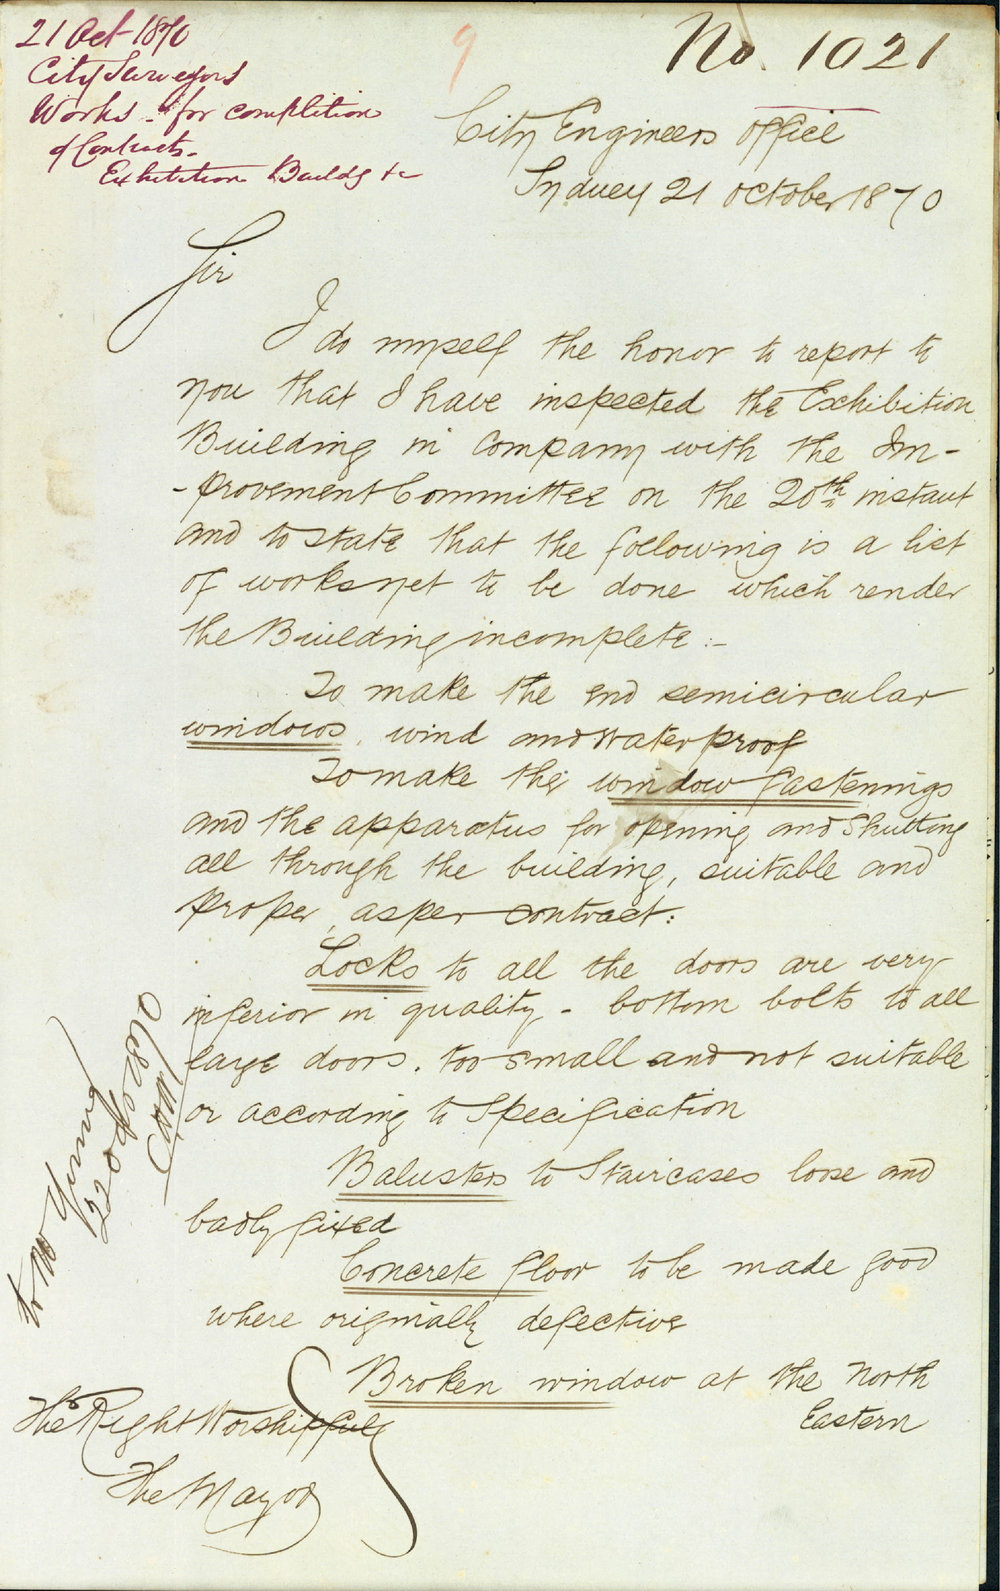 21 Oct 1870
City Surveyors
Works - for completion
of Contracts -
Exhibition Buildg &c
9
No. 1021
City Engineers office
Sydney 21 October 1870
Sir
I do myself the honor to report to
you that I have inspected the Exhibition
Building in Company with the Im-
-provement Committee on the 20th instant
and to state that the following is a list
of works yet to be done which render
the Building incomplete :-
To make the end semicircular
windows, wind and waterproof
To make the window fastenings
and the apparatus for opening and shutting
all through the building, suitable and
proper, as per contract:
Locks to all the doors are very
inferior in quality - bottom bolts to all
large doors, too small and not suitable
or according to Specification
Balusters to Staircases loose and
badly fixed
Concrete floor to be made good
where originally defective
Broken window at the North
Eastern
The Right Worshipful
The Mayor
to Mr Young
22 Oct 1870